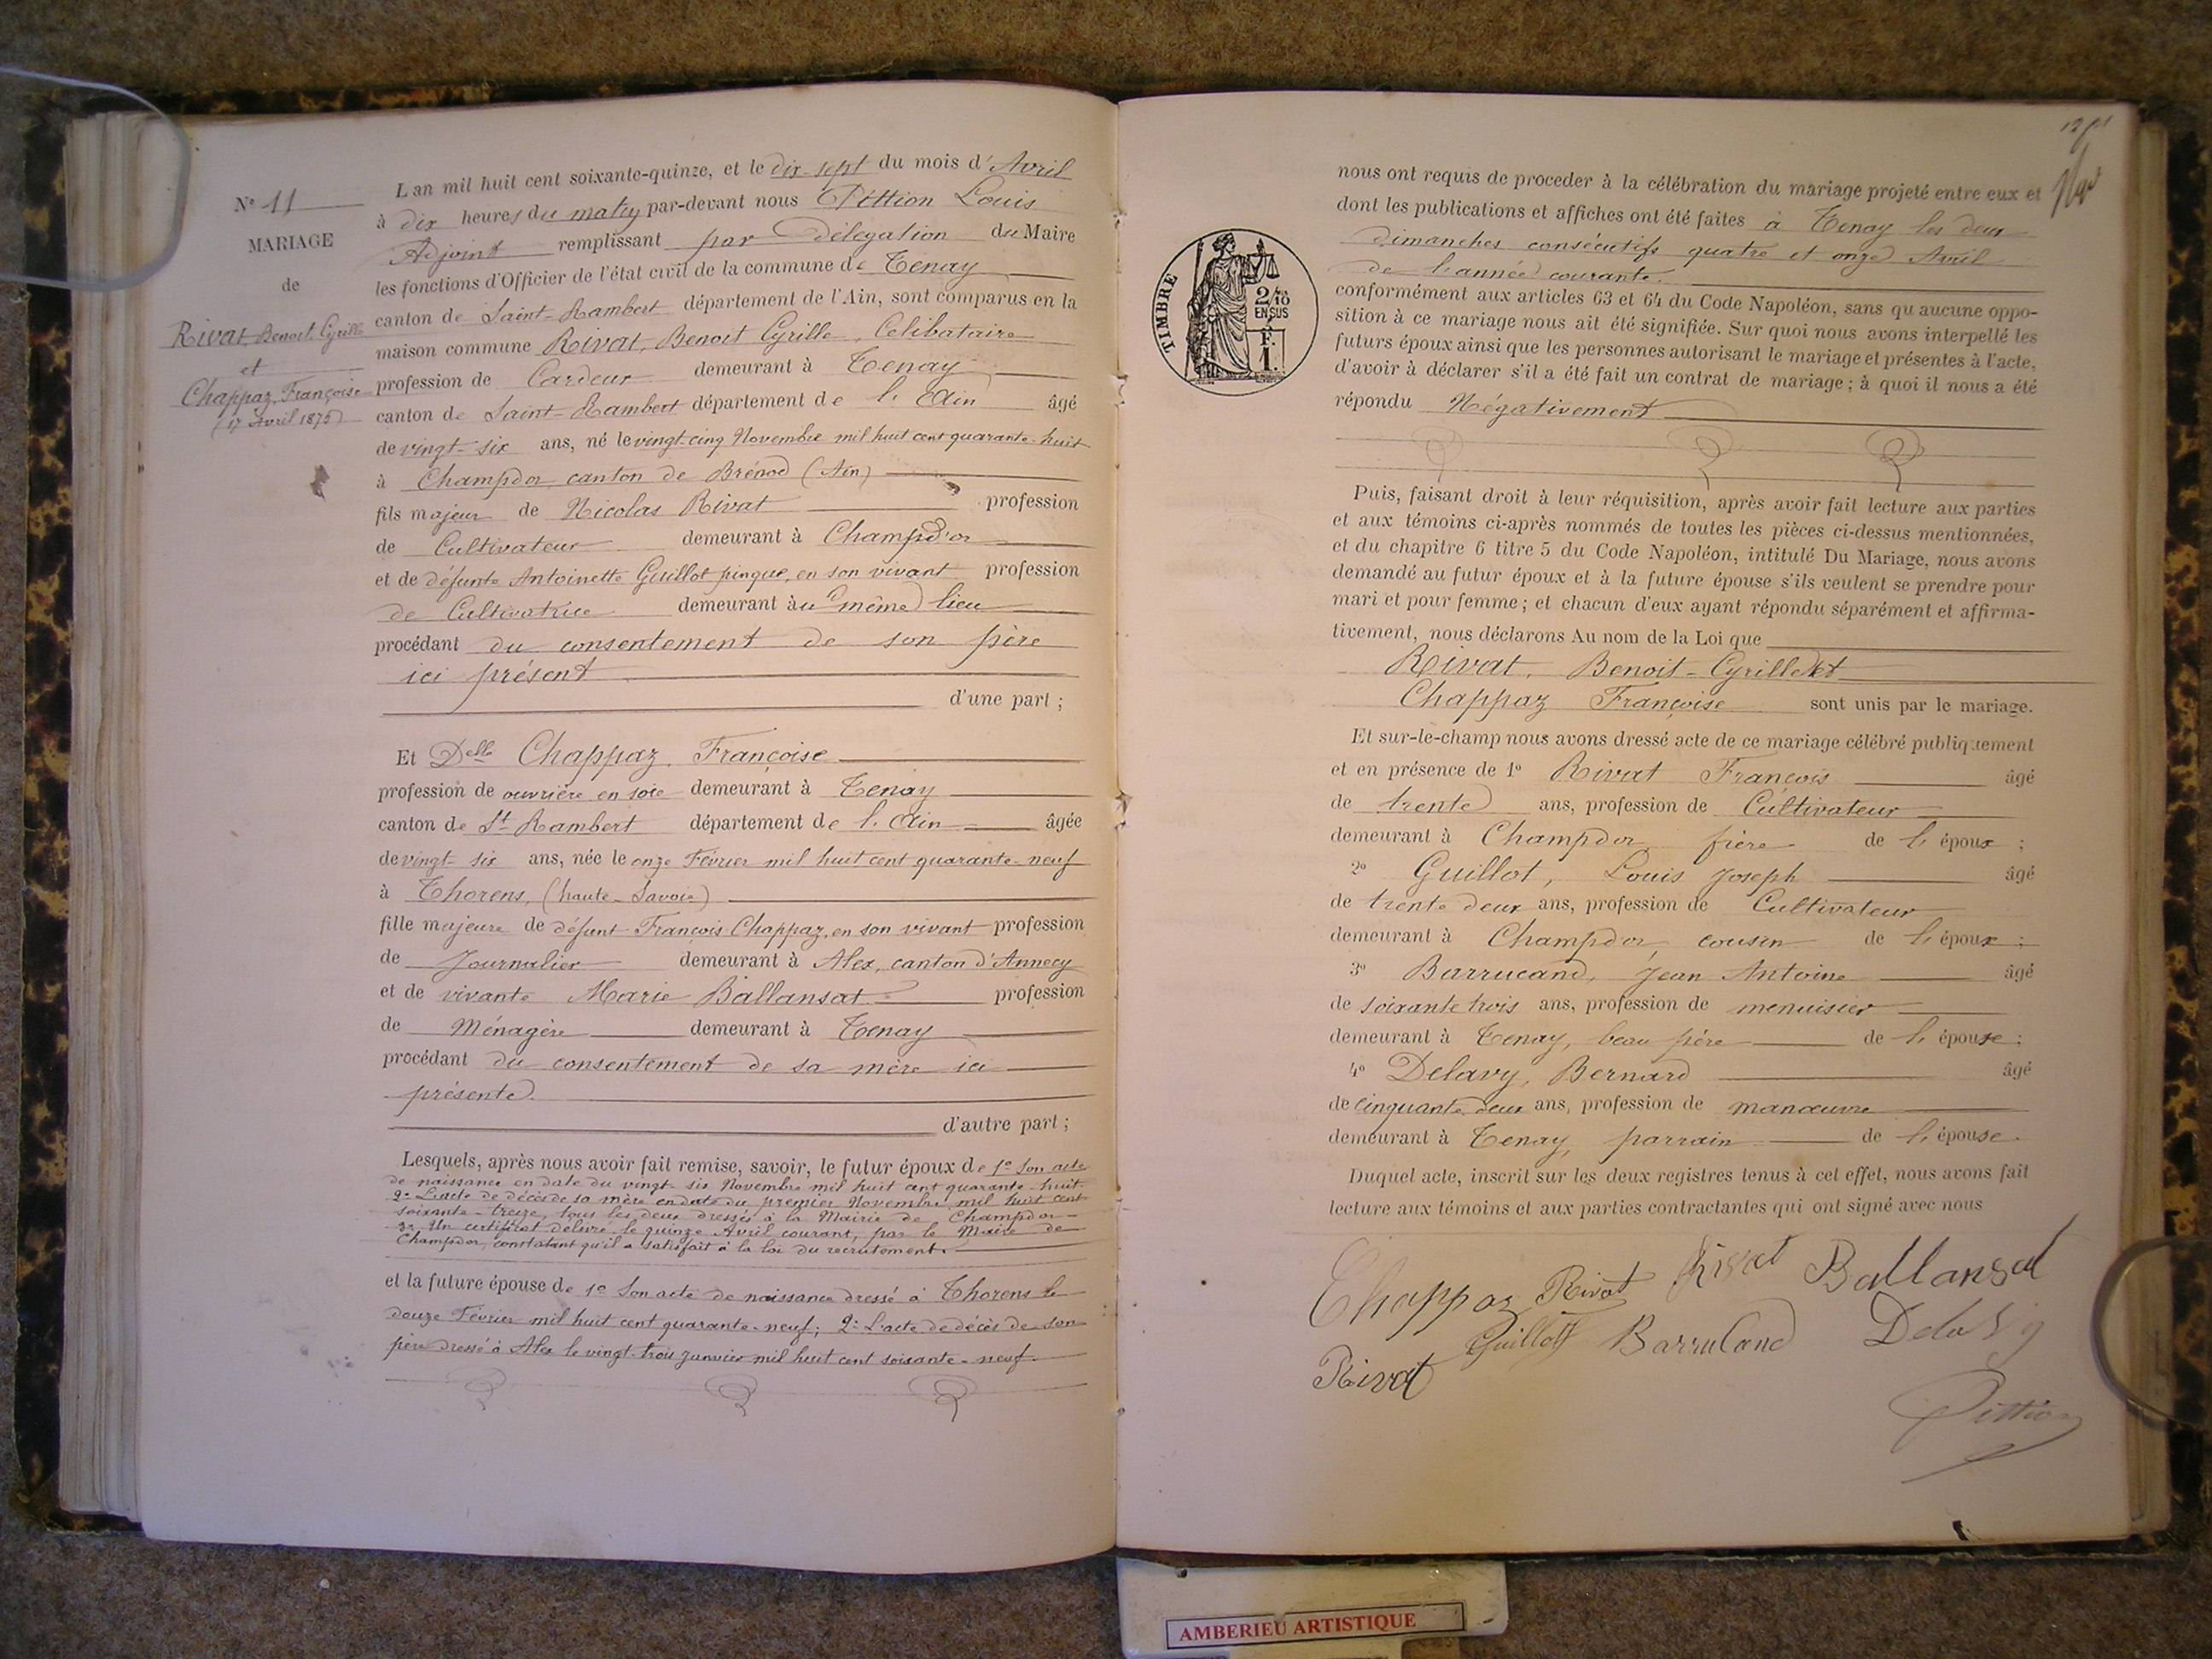 N° 11
MARIAGE
de
Rivat, Benoit Cyrille
et
Chappaz, Françoise
(17 Avril 1875)
L'an mil huit cent soixante-quinze, et le dix-sept du mois d'Avril
à dix heures du matin par-devant nous Pittion Louis
Adjoint remplissant par Délégation du Maire
les fonctions d'Officier de l'état civil de la commune de Tenay
canton de Saint-Rambert département de l'Ain, sont comparus en la
maison commune Rivat, Benoit Cyrille, Celibataire
profession de Cardeur demeurant à Tenay
canton de Saint-Rambert département de l'Ain âgé
de vingt-six ans, né le vingt-cinq Novembre mil huit cent quarante-huit
à Champdor canton de Brénod (Ain)
fils majeur de Nicolas Rivat profession
de Cultivateur demeurant à Champd'or
et de défunte Antoinette Guillot pinque, en son vivant profession
de Cultivatrice demeurant au même lieu
procédant du consentement de son père
ici présent
d'une part ;
Et Delle Chappaz, Françoise
profession de ouvrière en soie demeurant à Tenay
canton de St Rambert département de l'Ain âgée
de vingt-six ans, née le onze Février mil huit cent quarante-neuf
à Thorens, (haute-Savoie)
fille majeure de défunt François Chappaz, en son vivant profession
de Journalier demeurant à Alex, canton d'Annecy
et de vivante Marie Ballansat profession
de Ménagère demeurant à Tenay
procédant du consentement de sa mère ici
présente.
d'autre part ;
Lesquels, après nous avoir fait remise, savoir, le futur époux de 1° Son acte
de naissance en date du vingt-six Novembre mil huit cent quarante-huit.
2° L'acte de décès de sa mère en date du premier Novembre mil huit cent
soixante-treize, tous les deux dressés à la Mairie de Champdor
3° Un certificat délivré le quinze Avril courant, par le Maire de
Champdor, constatant qu'il a satisfait à la loi du recrutement.
et la future épouse de 1° Son acte de naissance dressé à Thorens le
douze Février mil huit cent quarante-neuf; 2° L'acte de décès de son
père dressé à Alex le vingt-trois Janvier mil huit cent soixante-neuf.
TIMBRE
2/10
EN SUS
F.
1.
nous ont requis de proceder à la célébration du mariage projeté entre eux et
dont les publications et affiches ont été faites à Tenay les deux
dimanches consécutifs quatre et onze Avril
de l'année courante.
conformément aux articles 63 et 64 du Code Napoléon, sans qu aucune oppo-
sition à ce mariage nous ait été signifiée. Sur quoi nous avons interpellé les
futurs époux ainsi que les personnes autorisant le mariage et présentes à l'acte,
d'avoir à déclarer s'il a été fait un contrat de mariage ; à quoi il nous a été
répondu Négativement
Puis, faisant droit à leur réquisition, après avoir fait lecture aux parties
et aux témoins ci-après nommés de toutes les pièces ci-dessus mentionnées,
et du chapitre 6 titre 5 du Code Napoléon, intitulé Du Mariage, nous avons
demandé au futur époux et à la future épouse s'ils veulent se prendre pour
mari et pour femme ; et chacun d'eux ayant répondu séparément et affirma-
tivement, nous déclarons Au nom de la Loi que
Rivat, Benoit-Cyrille et
Chappaz Françoise sont unis par le mariage.
Et sur-le-champ nous avons dressé acte de ce mariage célébré publiquement
et en présence de 1° Rivat François âgé
de trente ans, profession de Cultivateur
demeurant à Champdor frère de l'époux ;
2° Guillot, Louis Joseph âgé
de trente deux ans, profession de Cultivateur
demeurant à Champdor, cousin de l'époux ;
3° Barrucand, Jean Antoine âgé
de soixante trois ans, profession de menuisier
demeurant à Tenay, beau père de l'épouse ;
4° Delavy, Bernard âgé
de cinquante deux ans, profession de manœuvre
demeurant à Tenay, parrain de l'épouse.
Duquel acte, inscrit sur les deux registres tenus à cet effet, nous avons fait
lecture aux témoins et aux parties contractantes qui ont signé avec nous
Chappaz Rivat Rivat Ballansat
Guillot Barrucand Delavy
Rivat
Pittion
AMBERIEU ARTISTIQUE